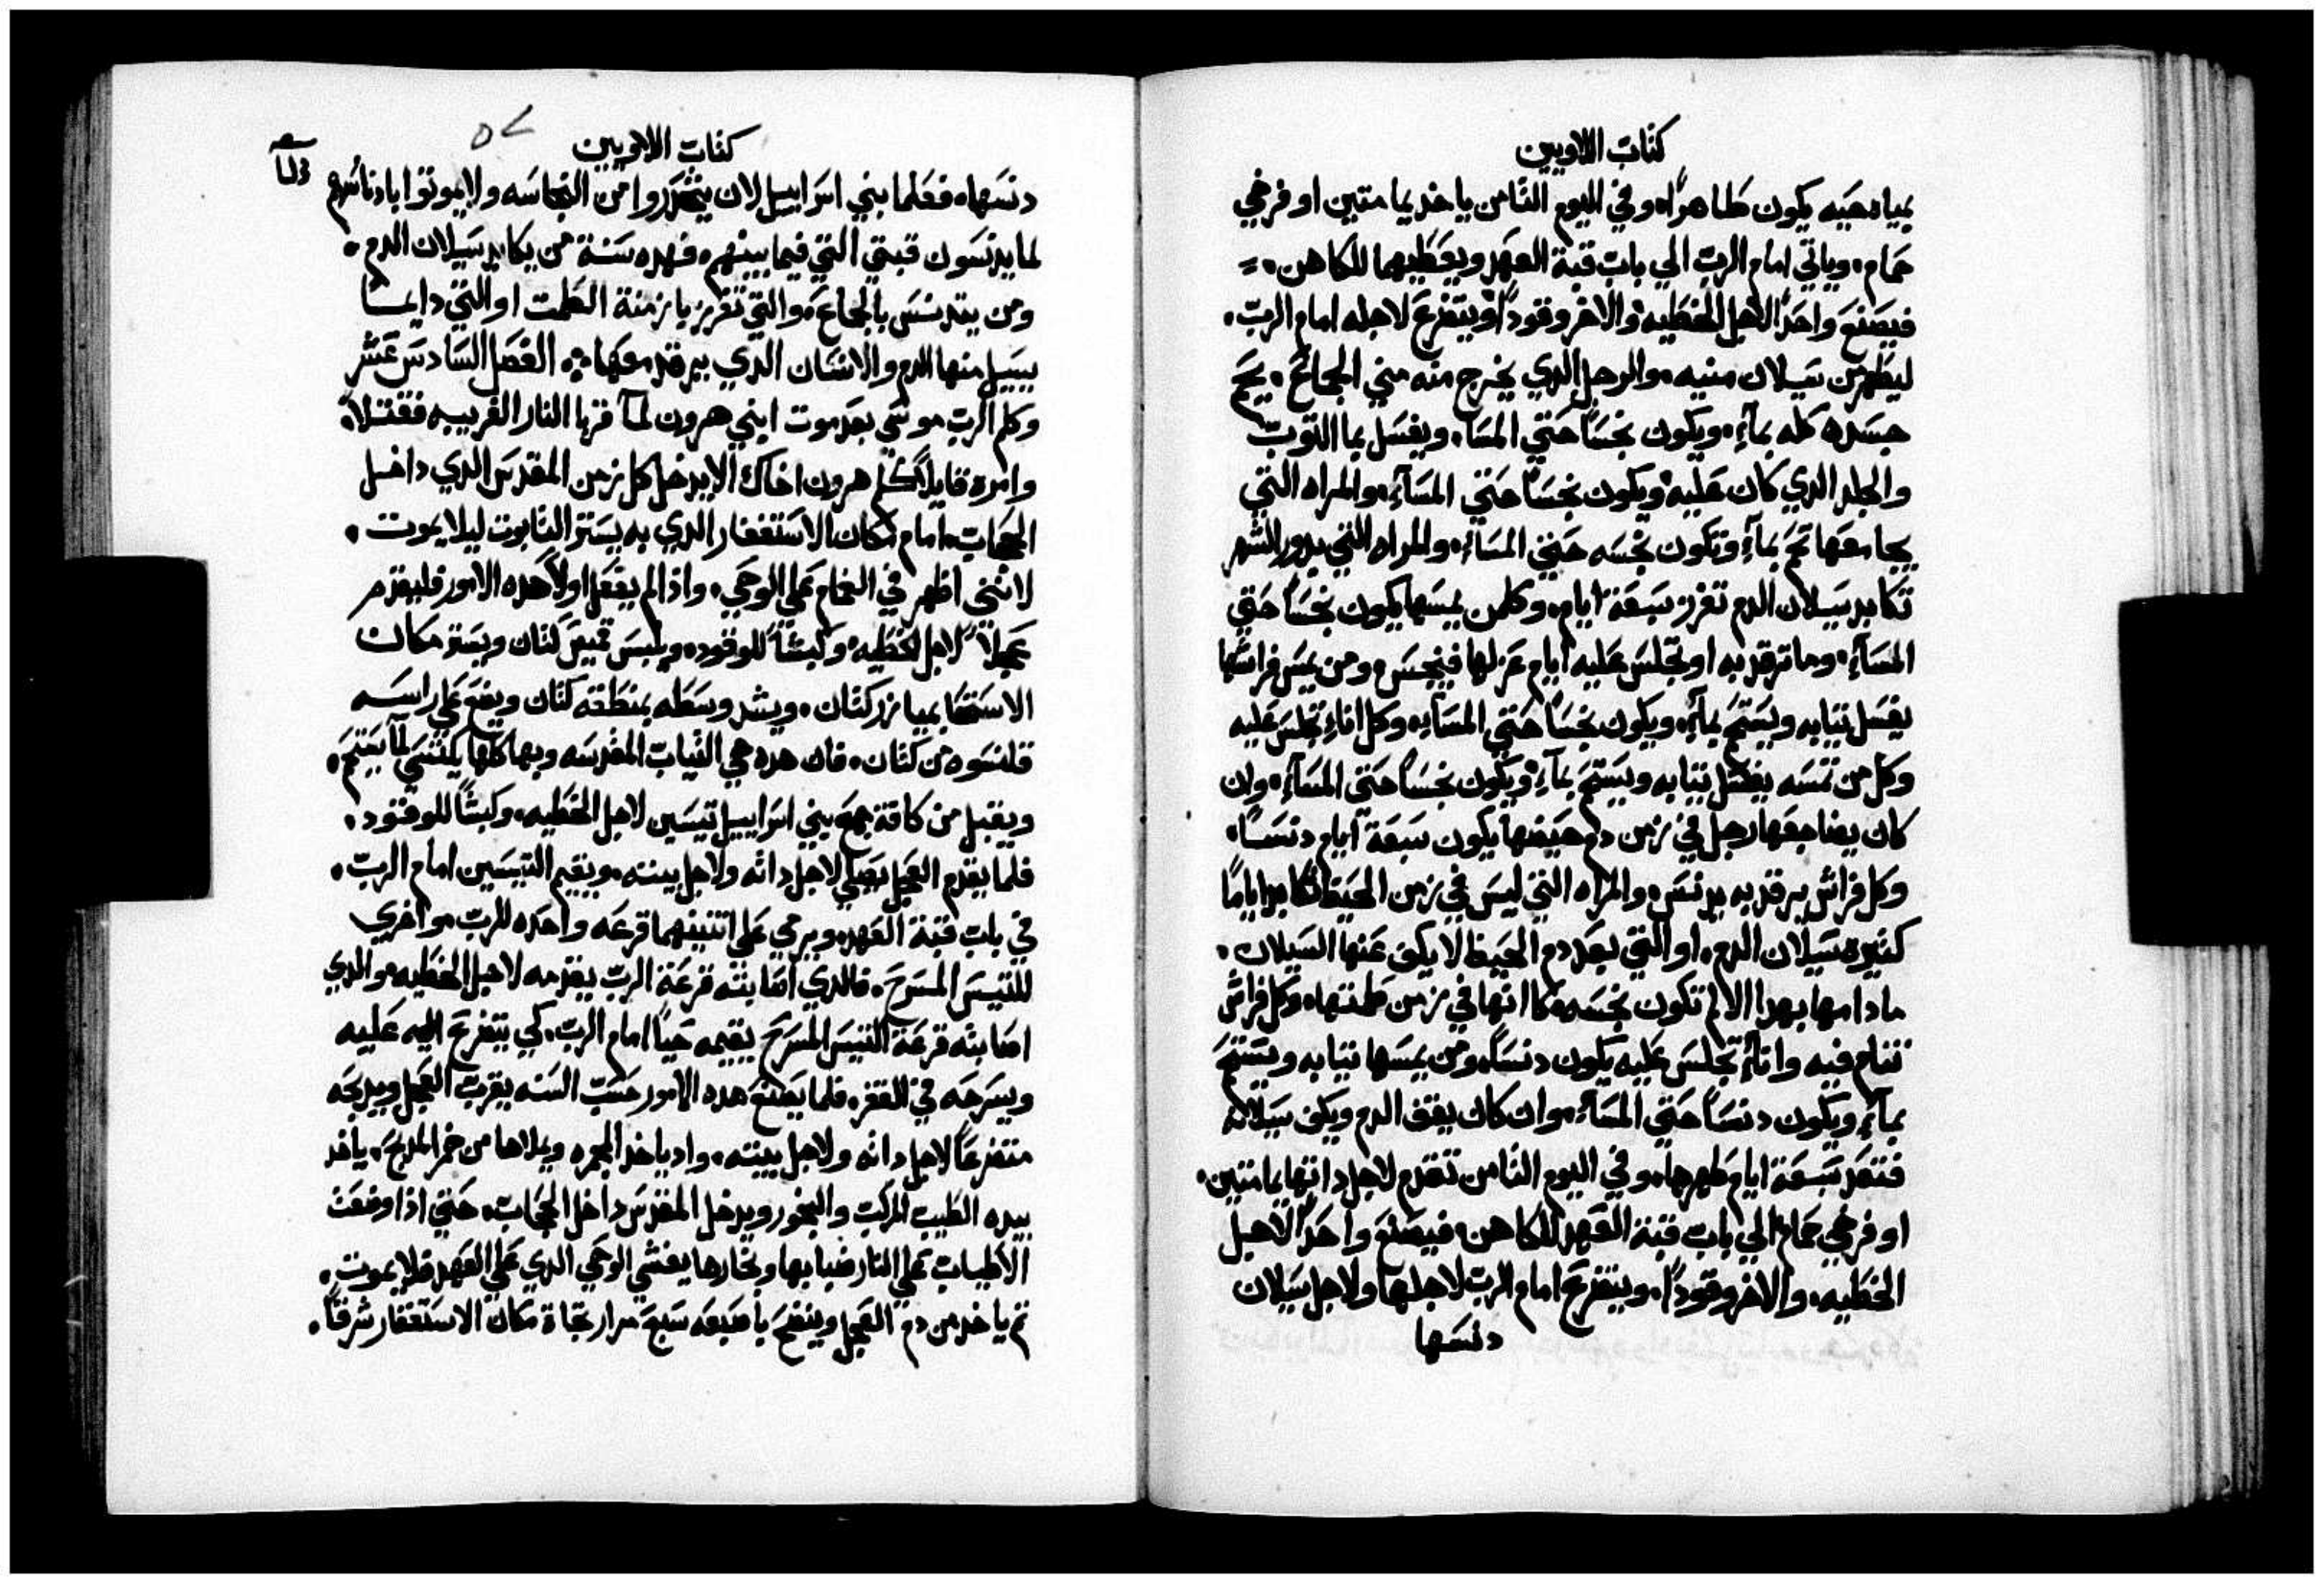 كتاب اللاويين
بمياه حيه يكون طاهرا، وفي اليوم الثامن ياخد يمامتين او فرخي
حمام، وياتي امام الرب الي باب قبة العهد ويعطيهما للكاهن،
فيصنع واحدا لاجل الخطيه والاخر وقودا، ويتضرع لاجله امام الرب،
ليطهر من سيلان منيه، والرجل الدي يخرج منه مني الجمائع، يحم
جسده كله بمآء، ويكون نجسا حتي المسا، ويغسل بما التوب
والجلد الدي كان عليه ويكون نجسا حتي المسآء، والمراه التي
يجامعها تحم بمآء وتكون نجسه حتي المسآء، والمراه التي بدور الشهر
تكابد سيلان الدم تفرز سبعة ايام، وكلمن يمسها يكون نجسا حتي
المسآء، وما ترقد به او تجلس عليه ايام عزلها فينجس، ومن يمس فراشها
يغسل تيابه ويستحم بمآء، ويكون نجسا حتي المسآء، وكل اناء تجلس عليه
وكل من تمسه يغسل تيابه ويستحم بمآء ويكون نجسا حتي المسآء، وان
كان يضاجعها رجل في زمن دم حيضها يكون سبعة ايام دنسا،
وكل فراش يرقد به يدنس، والمراه التي ليس في زمن الحيض تكابد اياما
كتيره سيلان الدم، او التي بعد دم الحيض لا يكف عنها السيلان،
مادامها بهدا الالم تكون نجسه كما انها في زمن طمتها، وكل فراش
تنام فيه واناء تجلس عليه يكون دنسا، ومن يمسها تيابه ويستحم
بمآء ويكون دنسا حتي المسآء، وان كان يقف الدم ويكف سيلانه
فتعد سبعة ايام طهرها، وفي اليوم الثامن تقدم لاجل داتها يمامتين،
او فرخي حمام الي باب قبة العهد للكاهن، فيصنع واحدا لاجل
الخطيه، والاخر وقودا، ويتضرع امام الرب لاجلها ولاجل سيلان
دنسها
كتاب اللاويين
دنسها، فعلما بني اسراييل لان يتحدروا من النجاسه ولا يموتوا بادناسهم
لما يدنسون قبتي التي فيما بينهم، فهده سنة من يكابد سيلان الدم،
ومن يتدنس بالجماع، والتي تفرز بازمنة الطمت او التي دايما
يسيل منها الدم والانسان الدي يرقد معها، الفصل السادس عشر
وكلم الرب موسي بعد موت ابني هرون لما قربا النار الغريبه فقتلا،
وامره قايلا كلم هرون اخاك الا يدخل كل زمن المقدس الدي داخل
الحجاب امام مكان الاستغفار الدي به يستر التابوت ليلا يموت،
لانني اظهر في الغمام علي الوحي، واذا لم يفعل اولا هده الامور فليقدم
عجلا لاجل الخطيه، وكبشا للوقود، ويلبس قميص كتان ويستر مكان
الاستحا بميازر كتان، ويشد وسطه بمنطقة كتان ويضع علي راسه
قلنسوه من كتان، فان هده هي التياب المقدسه وبها كلها يكتسي لمآ يستحم،
ويقبل من كافة جمع بني اسراييل تيسين لاجل الخطيه، وكبشا للوقود،
فلما يقدم العجل يصلي لاجل داته ولاجل بيته، ويقيم التيسين امام الرب،
في باب قبة العهد، ويرمي علي اتنينهما قرعه واحده للرب، واخري
للتيس المسرح، فالدي اصابته قرعة الرب يقدمه لاجل الخطيه، والدي
اصابته قرعة التيس المسرح يقيمه حيا امام الرب، كي يتضرع اليه عليه
ويسرحه في القفر، فلما يصنع هده الامور حسب السنه يقرب العجل ويدبحه
متضرعا لاجل داته ولاجل بيته، واد ياخد المجمره ويملاها من جمر المدبح، ياخد
بيده الطيب المركب والبخور ويدخل المقدس داخل الحجاب، حتي اذا وضعت
الاطيبات علي النار ضبابها وبخارها يغشي الوحي الدي علي العهد فلا يموت،
تم ياخد من دم العجل وينضح باصبعه سبع مرار تجاة مكان الاستغفار شرقا،